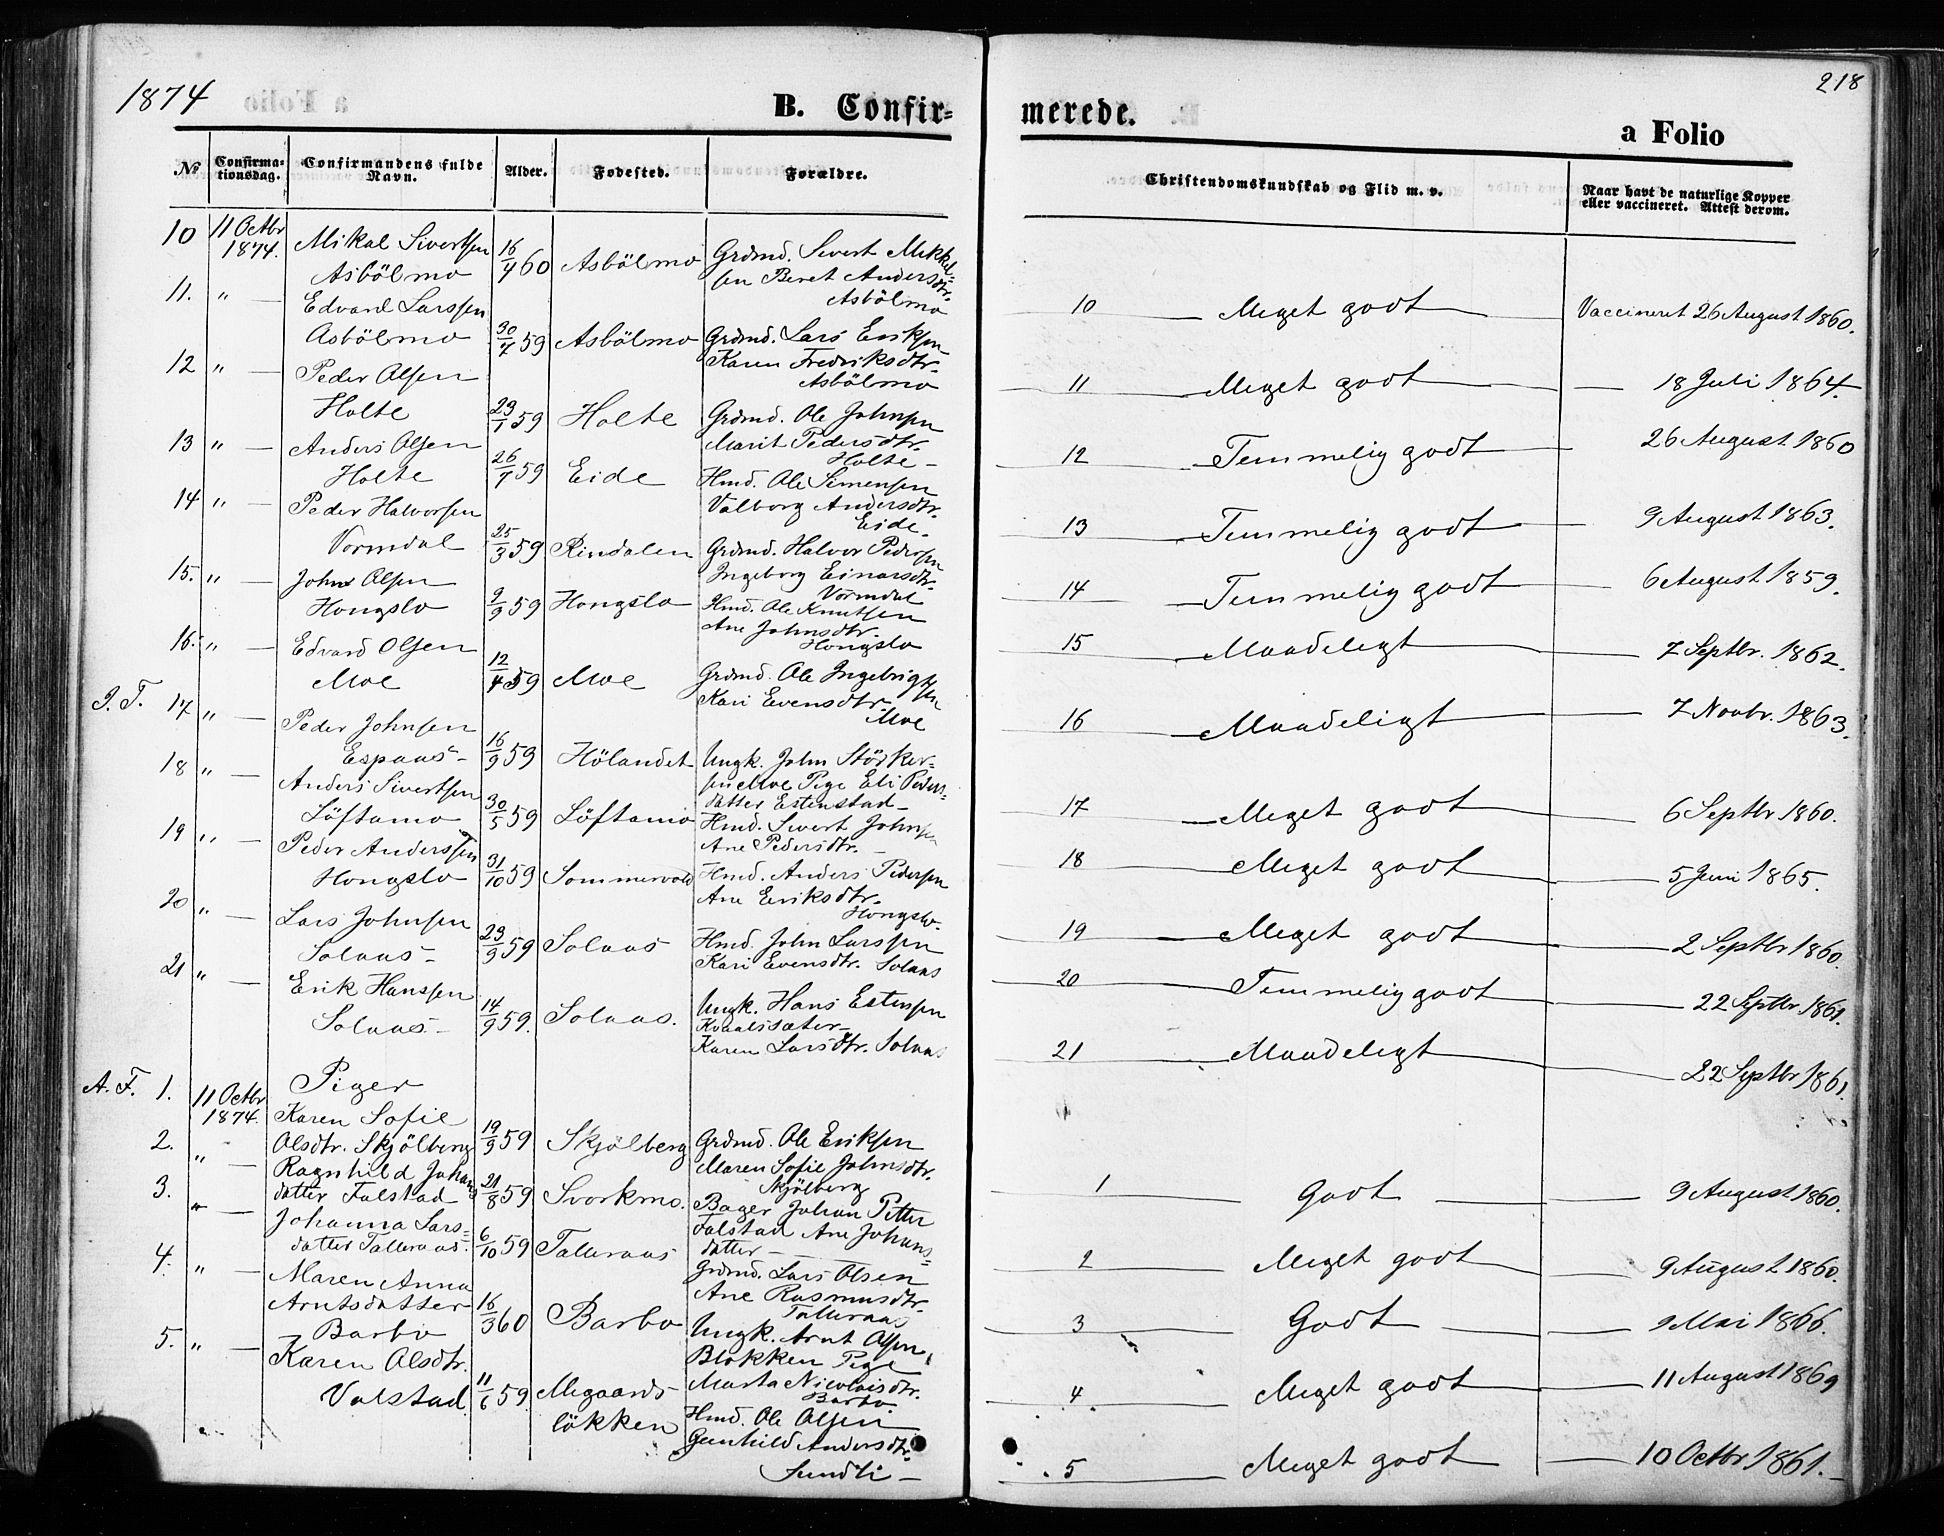 1874
B. Confir-
№
Confirma-
tionsdag.
Confirmandens fulde
Navn.
Alder.
Fødested.
Forældre.
10 11 Octbr 1874. Mikal Sivertsen Asbölmo 16/4 60 Asbölmo Grdmd. Sivert Mikkel-
sen Beret Andersdtr.
Asbölmo
11. " — Edvard Larssen
Asbölmo 30/7 59 Asbölmo Grdmd. Lars Eriksen
Karen Fredriksdtr.
Asbölmo
12 " — Peder Olsen
Holte 29/1 59 Holte Grdmd. Ole Johnsen
Marit Pedersdtr.
Holte
13 " — Anders Olsen
Holte 26/7 59 Eide Hmd. Ole Simensen
Valborg Andersdtr.
Eide.
14 " — Peder Halvorsen
Vormdal 25/3 59 Rindalen Grdmd. Halvor Pedersen
Ingeborg Einarsdtr.
Vormdal
15. " — John Olsen
Hongslo 9/9 59 Hongslo Hmd. Ole Knutsen
Ane Johnsdtr.
Hongslo
16. " — Edvard Olsen
Moe 12/4 59 Moe Grdmd. Ole Ingebrigtsen
Kari Evensdtr.
Moe
17 " — Peder Johnsen
Espaas 16/9 59 Hölandet Ungk. John Störker-
sen Moe Pige Eli Peders-
datter Estenstad
18 " — Anders Sivertsen
Löftamo 30/5 59 Löftamo Hmd. Sivert Johnsen
Ane Pedersdtr. —
19 " — Peder Anderssen
Hongslo 31/10 59 Sommervold Hmd. Anders Pedersen
Ane Eriksdtr.
Hongslo
20 " — Lars Johnsen
Solaas 29/9 59 Solaas Hmd. John Larssen
Kari Evensdtr. Solaas
21 " — Erik Hanssen
Solaas 14/9 59. Solaas. Ungk. Hans Estensen
Kvaalssæter
Karen Larsdtr. Solaas
Piger
A. F. 1. 11 Octbr 1874. Karen Sofie
Olsdtr. Skjölberg 19/9 59 Skjölberg Grdmd. Ole Eriksen
Maren Sofie Johnsdtr.
Skjölberg
2. " — Ragnhild Johans
datter Falstad 21/8 59 Svorkmo. Bager Johan Petter
Falstad Ane Johans-
datter —
3. " — Johanna Lars-
datter Talleraas. 6/10 59 Talleraas Grdmd. Lars Olsen
Ane Rasmusdtr.
Talleraas
4. " — Maren Anna
Arntsdatter
Barbo 16/3 60 Barbo Ungk. Arnt Olsen
Blokken Pige
Marta Nicolaisdtr.
Barbo.
5. " — Karen Olsdtr.
Valstad 11/6 59 Megaards
lökken Hmd. Ole Olsen
Gunhild Andersdtr.
Sundli
218
merede.
a Folio
Christendomskundskab og Flid m. v.
Naar havt de naturlige Kopper
eller vaccineret. Attest derom.
10 — Meget godt — Vaccineret 26 August 1860.
11 — Meget godt — 18 Juli 1864.
12 — Temmelig godt — 26 August 1860
13 — Temmelig godt — 9 August 1863.
14 — Temmelig godt — 6 August 1859.
15 — Maadeligt — 7 Septbr. 1862.
16 — Maadeligt — 7 Novbr. 1863.
17 — Meget godt — 6 Septbr 1860.
18 — Meget godt — 5 Juni 1865.
19 — Meget godt — 2 Septbr 1860.
20 — Temmelig godt — 22 Septbr. 1861.
21 — Maadeligt — 22 Septbr 1861.
1 — Godt — 9 August 1860.
2 — Meget godt — 9 August 1860.
3 — Godt — 9 Mai 1866.
4 — Meget godt — 11 August 1869
5 — Meget godt — 10 Octbr 1861.